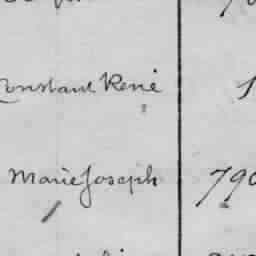 Constant René 1
Marie Joseph 790